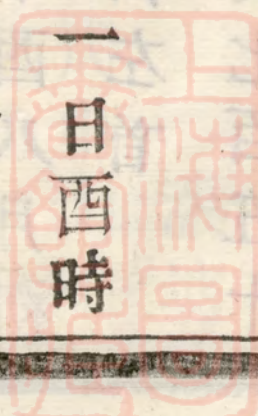 一日酉時